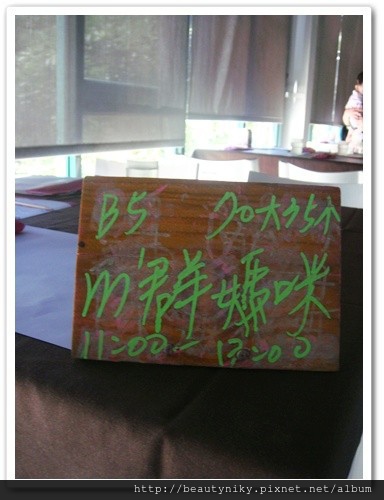 B5 20大 小
m'群媽咪
11:00 - 13:00
http://beautyniky.pixnet.net/album